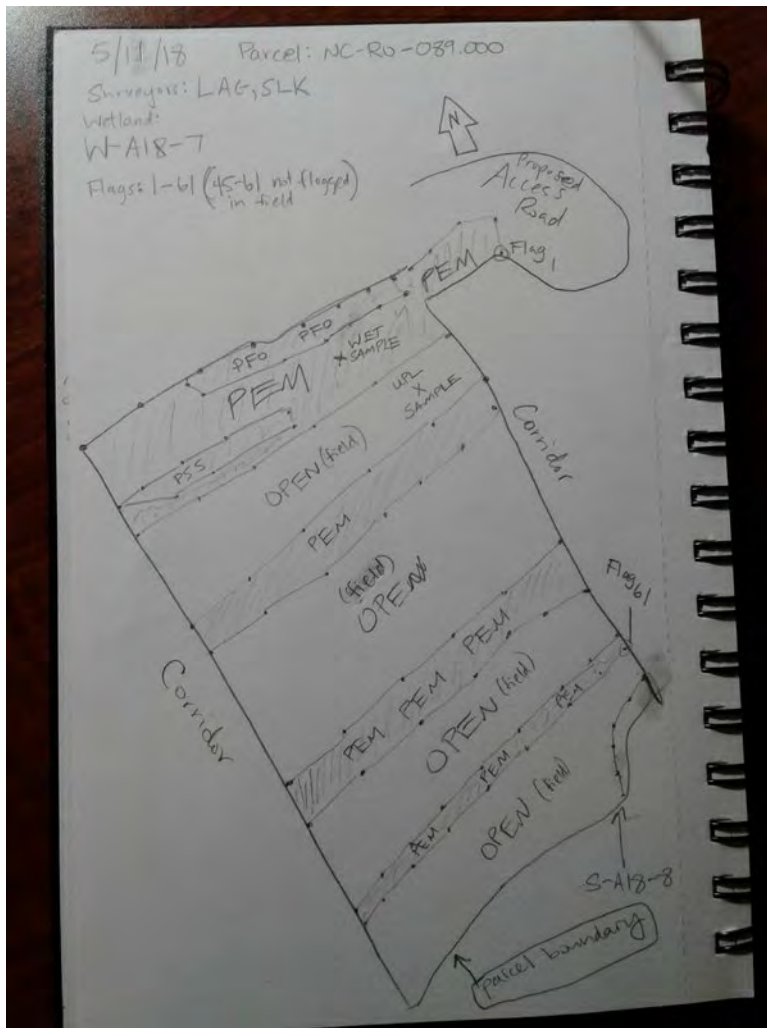 5/11/18 Parcel: NC-RO-089.000
Surveyors: LAG, SLK
Wetland:
W-A18-7
Flags: 1-61 (45-61 not flagged
in field)
N
Proposed
Access
Road
Flag 1
PEM
PFO
PFO
WET
X SAMPLE
PEM
UPL
X
SAMPLE
Corridor
PSS
OPEN (field)
PEM
(field)
OPEN
Flag 61
PEM
PEM
PEM
PEM
Corridor
OPEN (field)
PEM
PEM
PEM
OPEN (field
S-A18-8
parcel boundary